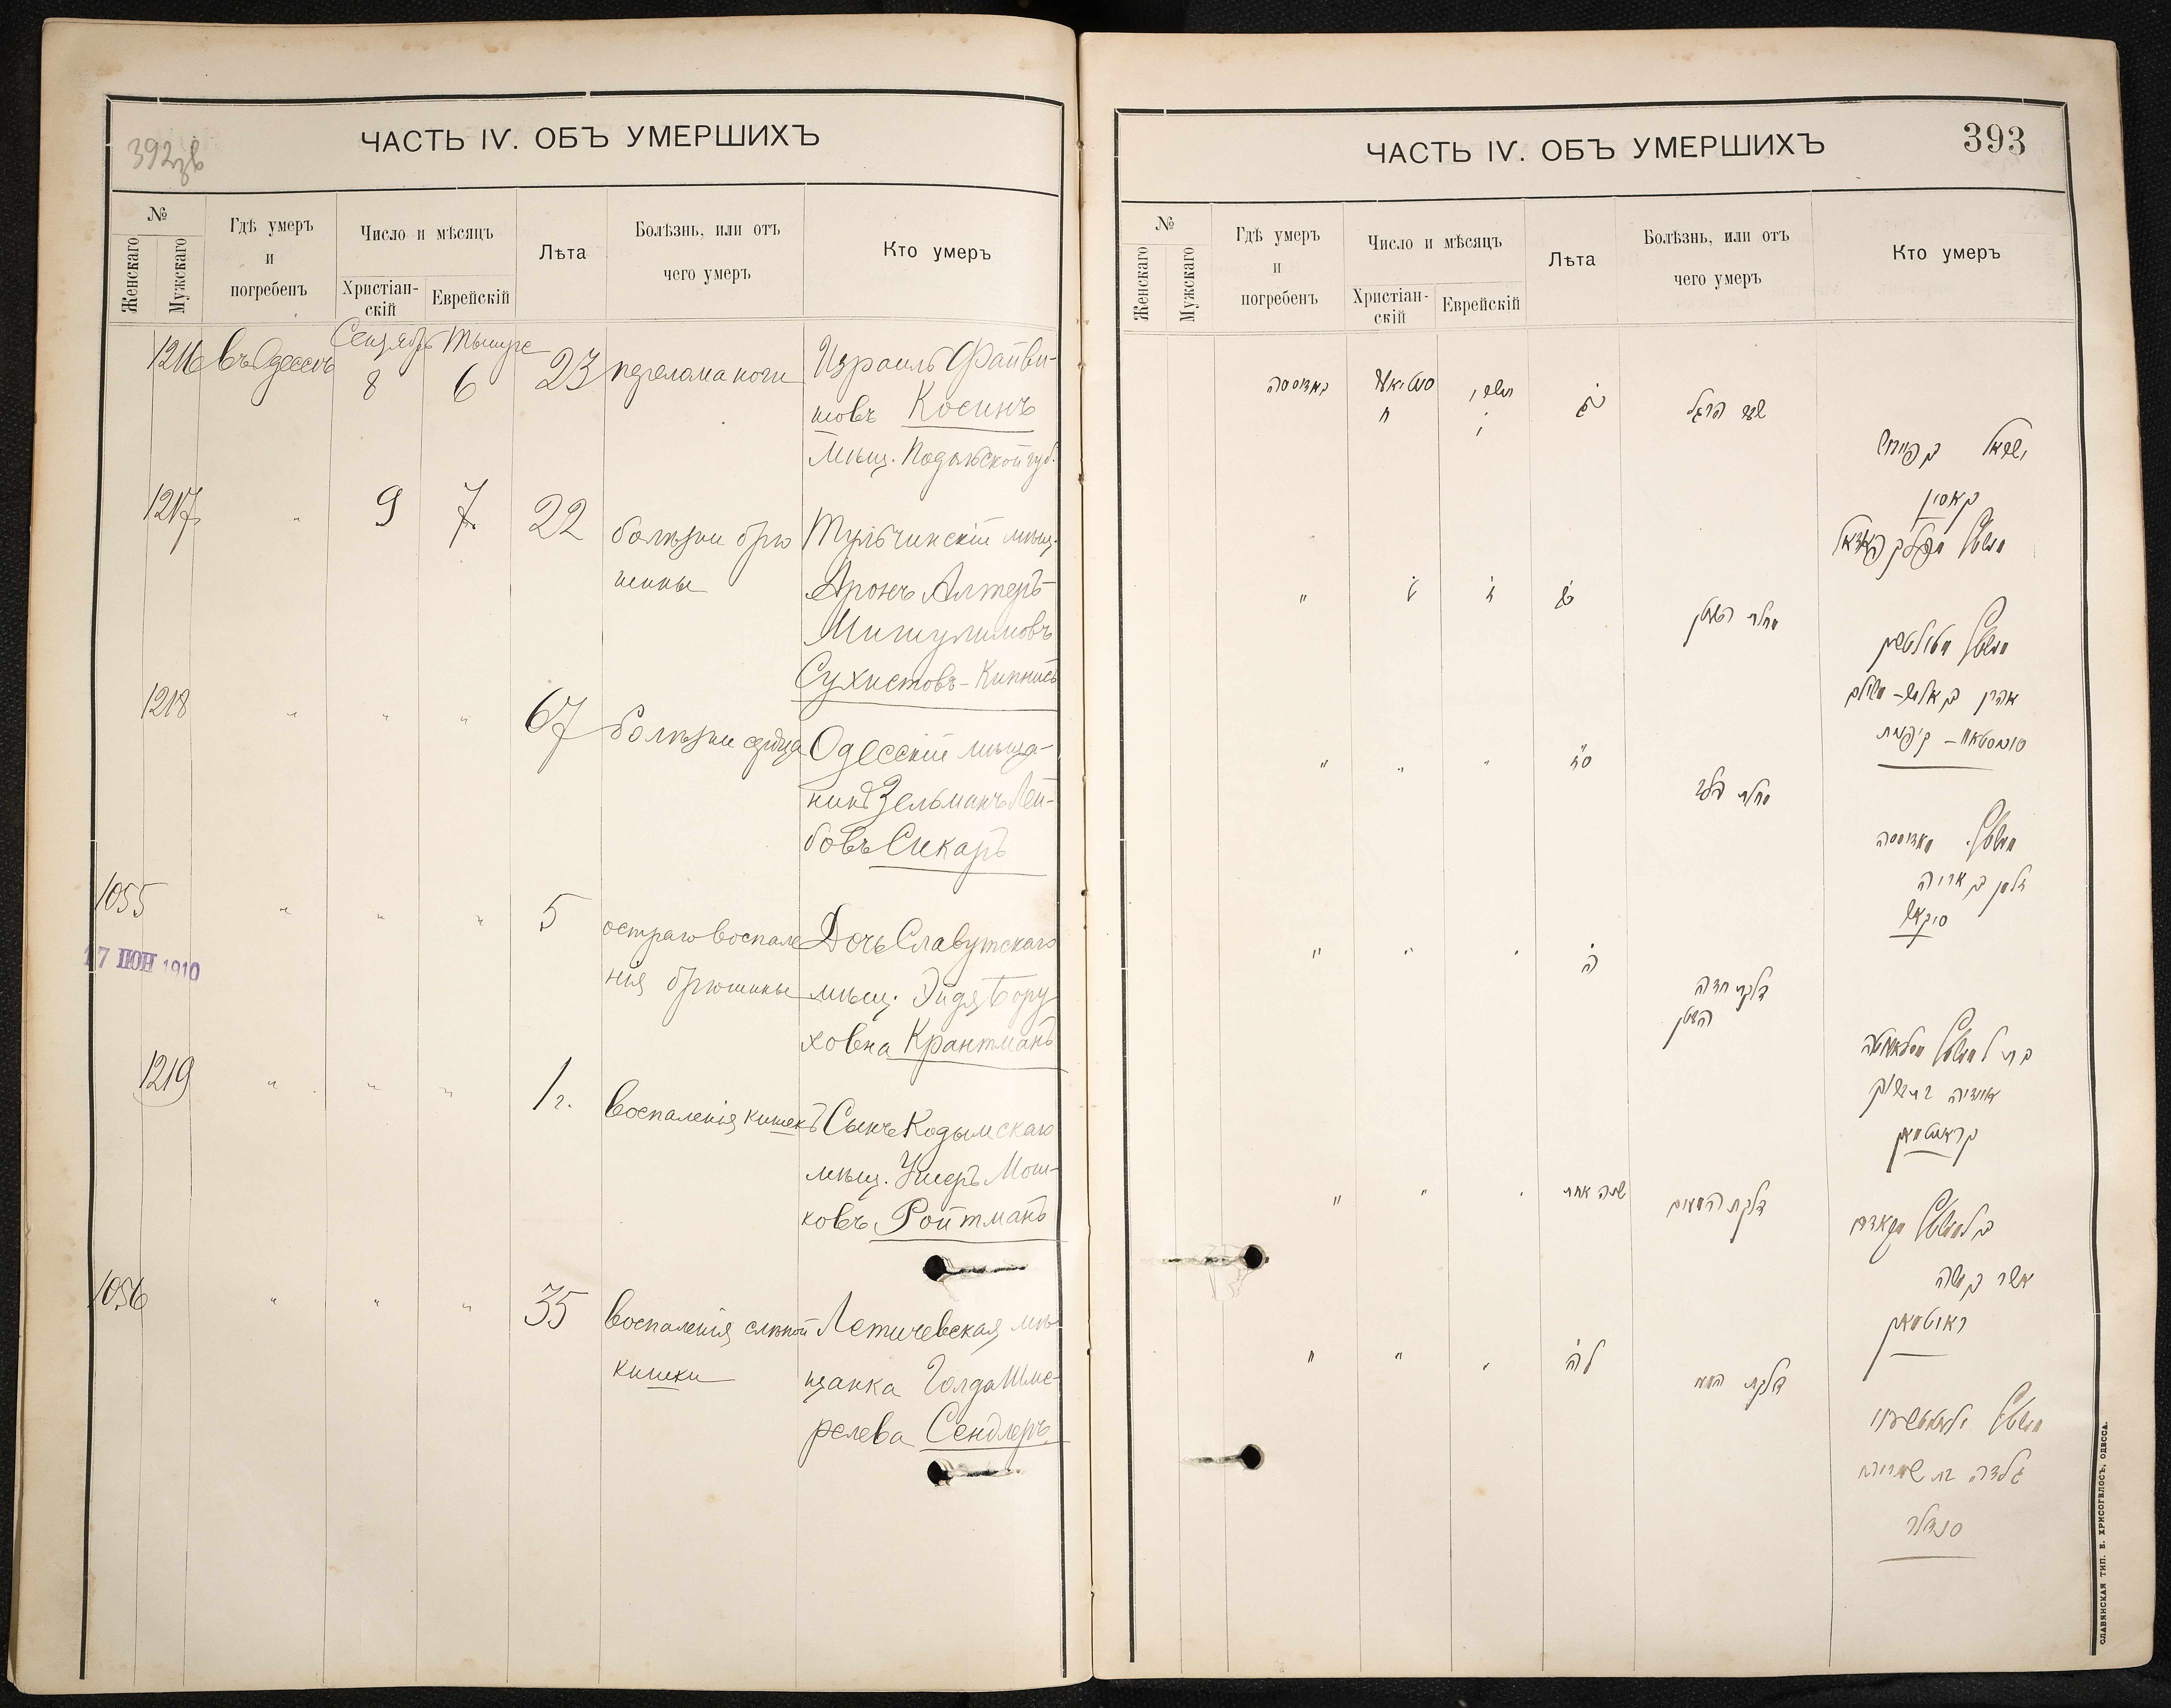 392 об
ЧАСТЬ IV. ОБЪ УМЕРШИХЪ
№
Женскаго
Мужскаго
Гдѣ умеръ
и
погребенъ
Число и мѣсяцъ
Христіан-
скій
Еврейскій
Лѣта
Болѣзнь, или отъ
чего умеръ
Кто умеръ
1216 въ Одессѣ Сентябрь Тишре
8 6 23 перелома ноги Израиль Файви-
шовъ Косинъ
Мѣщ. Подольской губ.
1217 " 9 7 22 болѣзни брю
шины
Тульчинскій мѣщ.
Аронъ Алтеръ-
Мишулимовъ
Сухистовъ-Кипнисъ
1218 " " " 67 болѣзни сердца Одесскій мѣща-
нинъ Зельманъ Лей-
бовъ Сикаръ
1055 " " " 5 остраго воспале
нія брюшины
Дочь Славутскаго
мѣщ. Эйдя Бору
ховна Крантманъ
17 ІЮН 1910
1219 " " " 1 г. воспаленія кишекъ Сынъ Кодымскаго
мѣщ. Ушеръ Мош-
ковъ Ройтманъ
1056 " " " 35 воспаленія слѣпой
кишки
Летичевская мѣ
щанка Голда Шме-
релева Сендлеръ
ЧАСТЬ IV. ОБЪ УМЕРШИХЪ
393
№
Женскаго
Мужскаго
Гдѣ умеръ
и
погребенъ
Число и мѣсяцъ
Христіан-
скій
Еврейскій
Лѣта
Болѣзнь, или отъ
чего умеръ
Кто умеръ
באדוססה
ח
תשרי
ו
כג
שבר הרגל
ישראל בן
קאסין
"
ט
ז
כב
מחלת הבטן
אהרן בן אלטר
" " " סז
מחלת הלב
זלמן בן אריה
סיקאר
" " " ה
דלקת חדה
הבטן
קראנטמאן
" " " שנה אחת
דלקת המעים
אשר בן משה
ראוטמאן
" " " לה
דלקת המעי
גלדה בת
סנדלר
СЛАВЯНСКАЯ ТИП. Е. ХРИСОГЕЛОСЪ, ОДЕССА.